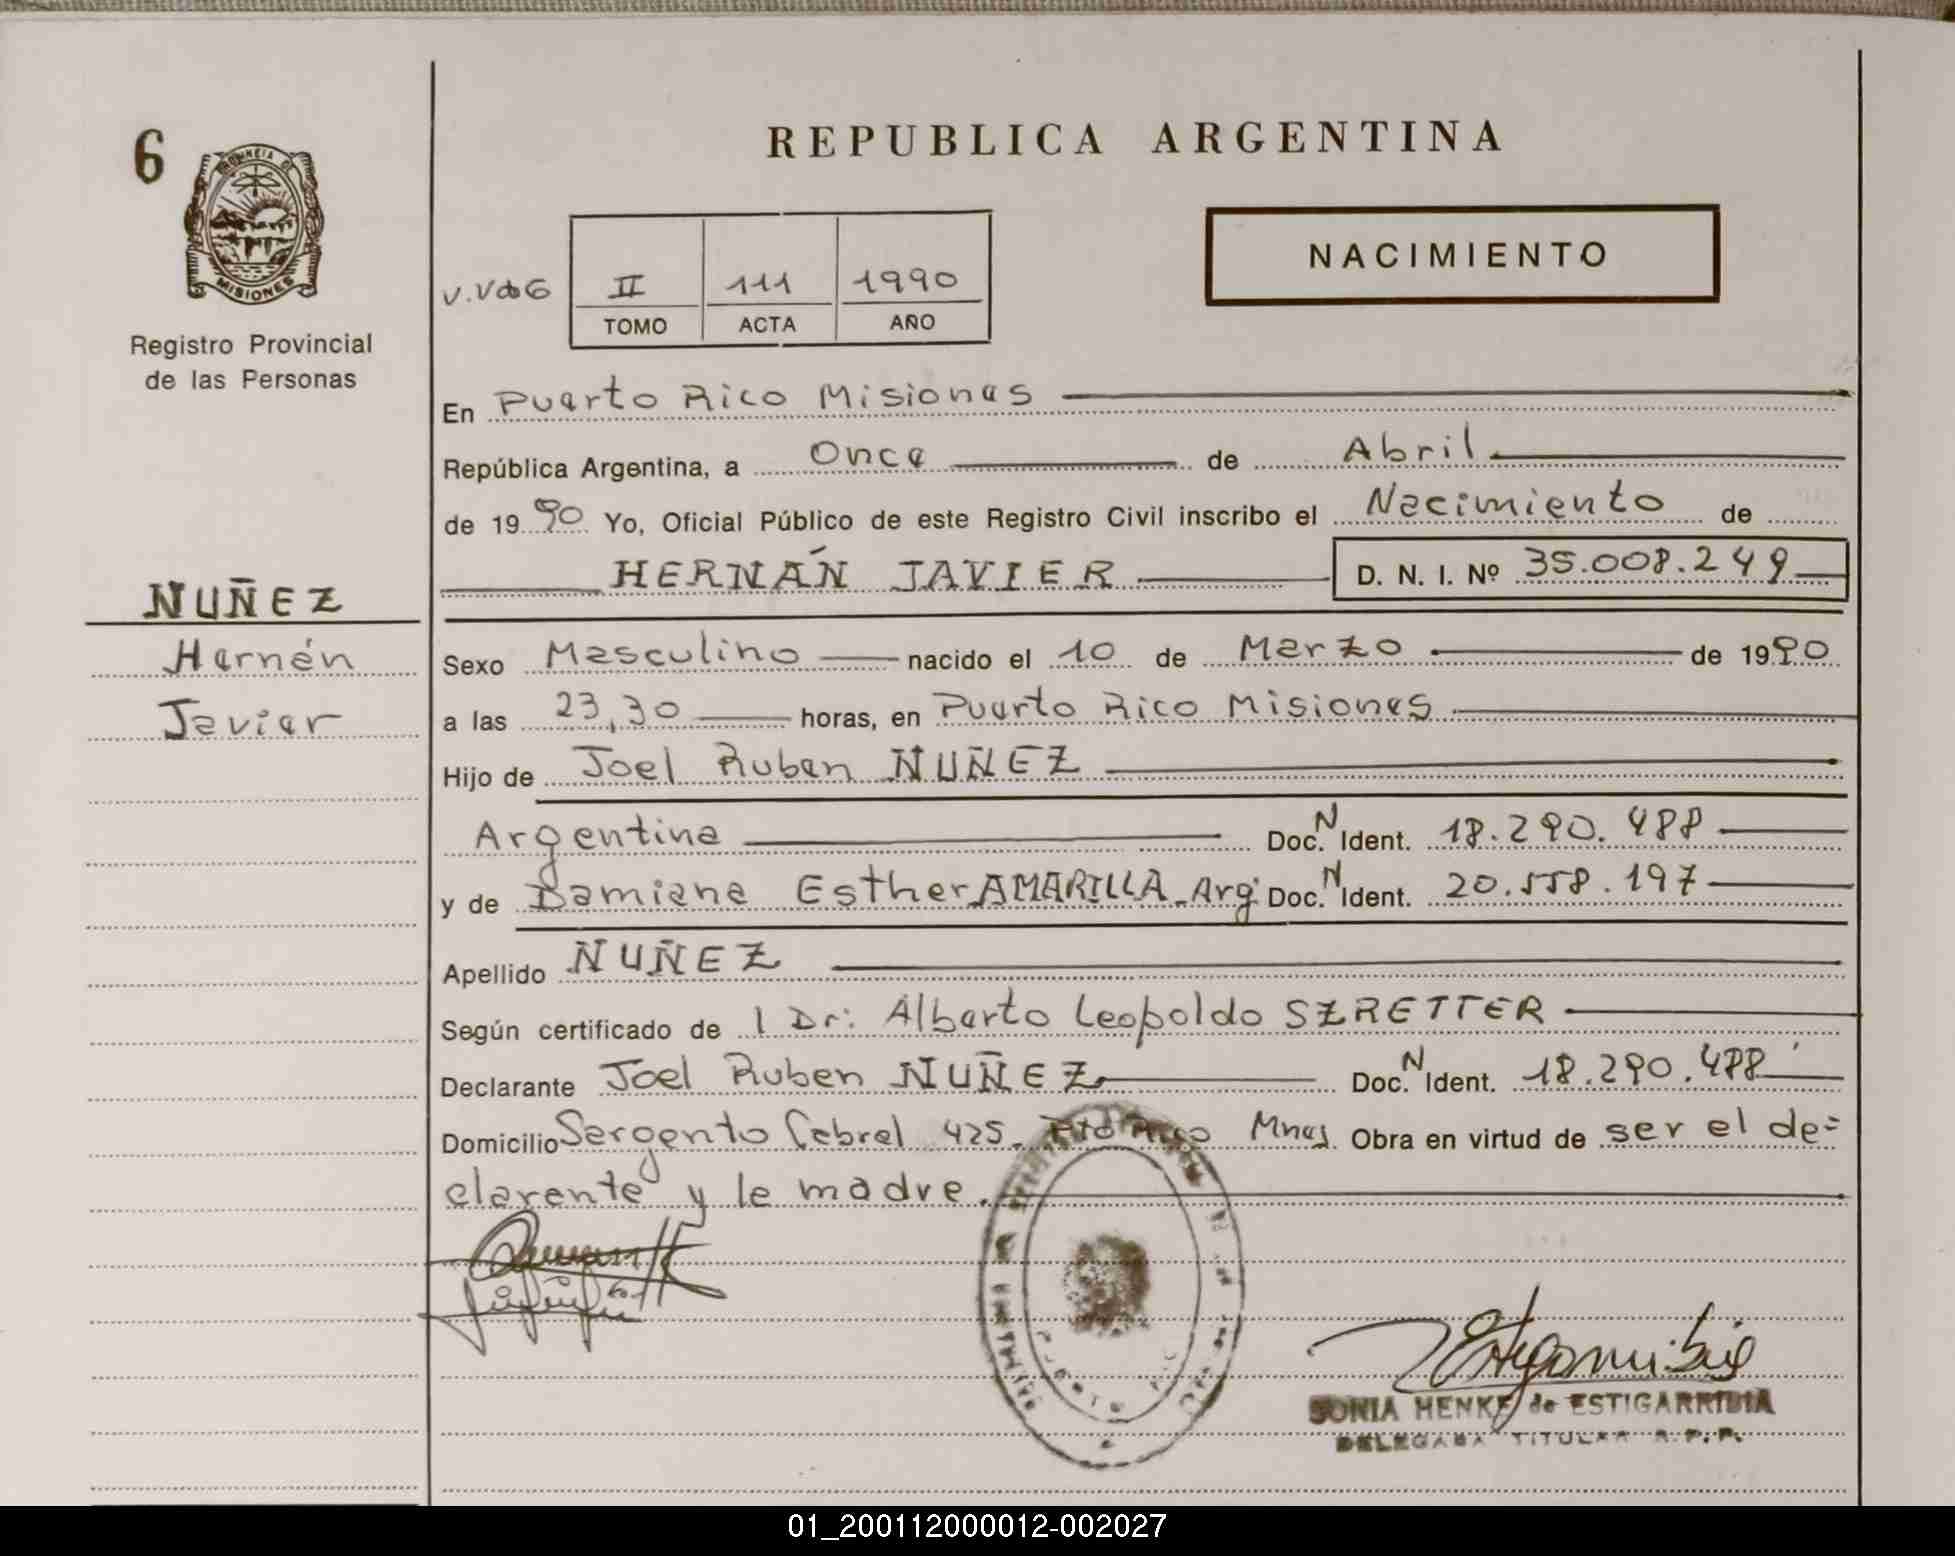 6
PROVINCIA DE
MISIONES
Registro Provincial
de las Personas
REPUBLICA ARGENTINA
NACIMIENTO
II 111 1990
TOMO ACTA AÑO
En Puerto Rico Misiones
República Argentina, a Once de Abril
de 1990 Yo, Oficial Público de este Registro Civil inscribo el Nacimiento de
HERNÁN JAVIER D. N. I. Nº 35.008.249
NUÑEZ
Hernán
Javier
Sexo Masculino nacido el 10 de Marzo de 1990
a las 23,30 horas, en Puerto Rico Misiones
Hijo de Joel Ruben NUÑEZ
Argentina Doc. N Ident. 18.290.488
y de Damiana Esther AMARILLA Arg. Doc. N Ident. 20.558.197
Apellido NUÑEZ
Según certificado de l Dr: Alberto Leopoldo SZRETTER
Declarante Joel Ruben NUÑEZ Doc. N Ident. 18.290.488
Domicilio Sargento Cabral 425. Pto Rico Mnes Obra en virtud de ser el de=
clarente y la madre.
SONIA HENKE de ESTIGARRIBIA
DELEGADA TITULAR R.P.P.
01_200112000012-002027